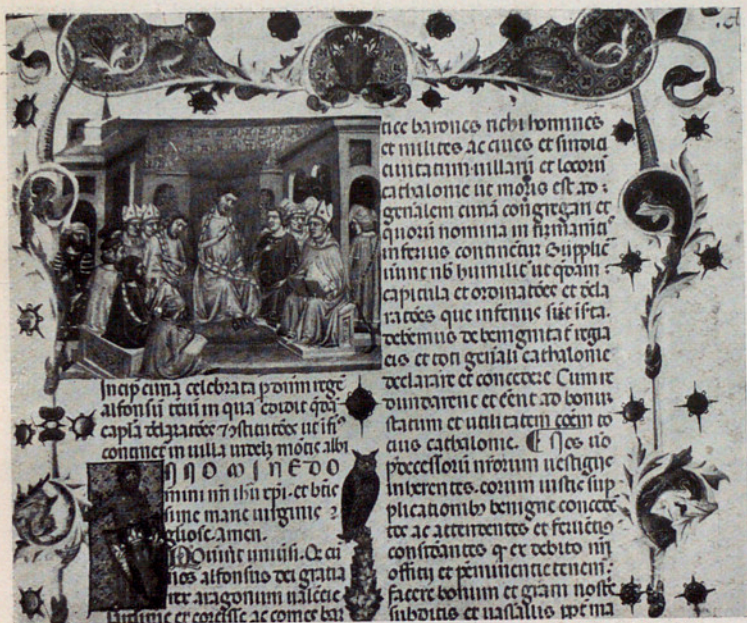 Incip curia celebrata p dnim regē
alfonsū tciū in qua
capla ⁊ ut ifiꝰ
continet in uilla mōtis albi
IN NOMINE DO
mini nrī ihū xpi. et btē
sime marie uirginis ⁊
gliose. amen.
Nouint uniūsi. Qd cū
nos alfonsus dei gratia
rex aragonum ualēcie
sardinie et corsice ac comes bar
tice barones richi homines
et milites ac ciues et sindici
ciuitatum. uillarū et locorū
cathalonie ut moris est ad
gen̄alem curiā congregari et
quorū nomina in firmamētis
inferius continētur Supplic̄
uīnt nb̄ humilit̄ ut qdam
capitula et ordinatōes et decla
ratōes que inferius sūt ista.
debemus de benignitate regia
eis et toti gen̄ali cathalonie
declarare et concedere Cum re
dundarent et eēnt ad bonū
statum et utilitatem to
cius cathalonie. Nos uō
pdecessorū nrorum uestigiis
inherentes. eorum iustis sup
plicationibꝰ benigne concedē
tes ac attendentes et feruētius
considantes ꝙ ex debito nrī
officii et tenemr̄
facere bonum et grām nostris
subditis et uasallis ppt ma